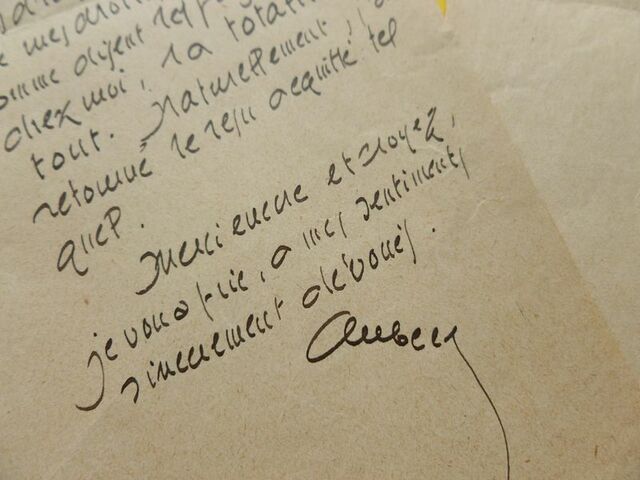 mes droits
comme disent les
chez moi, la totali
tout. Naturellement, j'ai
retourné le reçu acquitté tel
quel.
Merci encore et croyez,
je vous prie, à mes sentiments
sincèrement dévoués.
Aubert